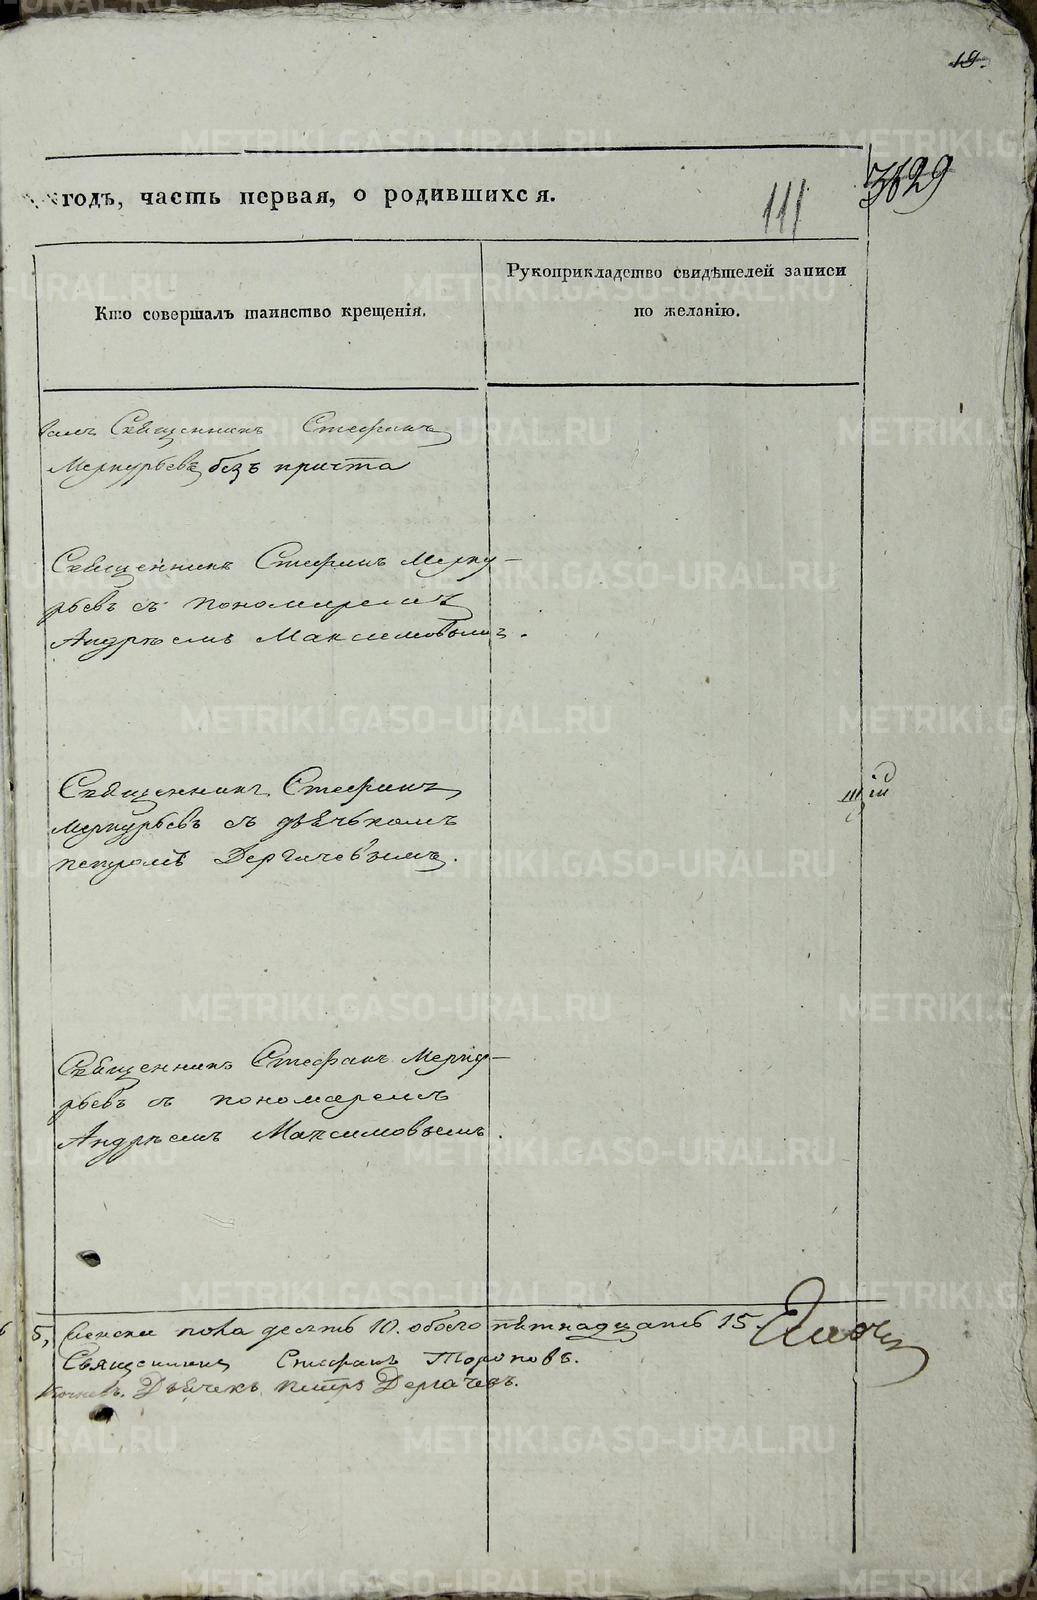 19.
годъ, часть первая, о родившихся.
111
3629
Кто совершалъ таинство крещенія.
Рукоприкладство свидѣтелей записи
по желанію.
Священникъ Стефанъ
Меркурьевъ безъ причта
Священникъ Стефанъ Мерку-
рьевъ съ пономаремъ
Андрѣемъ Максимовымъ.
Священникъ Стефанъ
Меркурьевъ съ дьячькомъ
Петромъ Дергачевымъ.
Священникъ Стефанъ Мерку-
рьевъ съ пономаремъ
Андрѣемъ Максимовымъ.
5, женска пола десять 10. обоего пятнадцать 15.
Священникъ Стефанъ Тороповъ.
Дьячекъ Петръ Дергачевъ.
METRIKI.GASO-URAL.RU